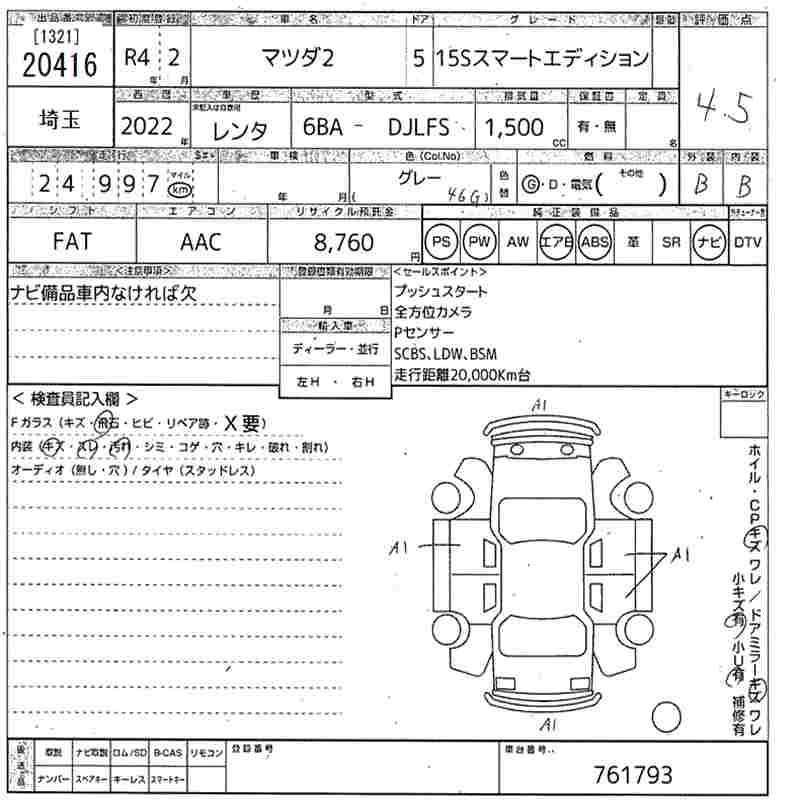 出品番号 初度登録 車名 ドア グレード 評価点
[1321]
20416 R4 2 マツダ2 5 15Sスマートエディション
年 月
4.5
西暦 車歴 型式 排気量 保証書 定員
埼玉 2022 年 未記入は自家用 レンタ 6BA - DJLFS 1,500 CC 有・無 名
走行 車検 色(Col.No) 燃料 外装 内装
24997 マイル km 年 月 グレー (46G) 色替 G・D・電気( その他 ) B B
シフト エアコン リサイクル預託金 純正装備品
FAT AAC 8,760 円 PS PW AW エアB ABS 革 SR ナビ DTV
<注意事項> 登録書類有効期限 <セールスポイント>
ナビ備品車内なければ欠
月 日
プッシュスタート
全方位カメラ
輸入車
Pセンサー
ディーラー・並行
SCBS、LDW、BSM
左H・右H
走行距離20,000Km台
< 検査員記入欄 >
キーロック
Fガラス (キズ・飛石・ヒビ・リペア跡・X要)
内装 (キズ・スレ・汚れ・シミ・コゲ・穴・キレ・破れ・割れ)
オーディオ (無し・穴) / タイヤ (スタッドレス)
A1
A1
A1
A1
ホイル・CPキズ ワレ / ドアミラーキズ ワレ
小キズ有 / 小U有 補修有
後送品 取説 ナビ取説 ロム/SD B-CAS リモコン 登録番号 車台番号
ナンバー スペアキー キーレス スマートキー
761793